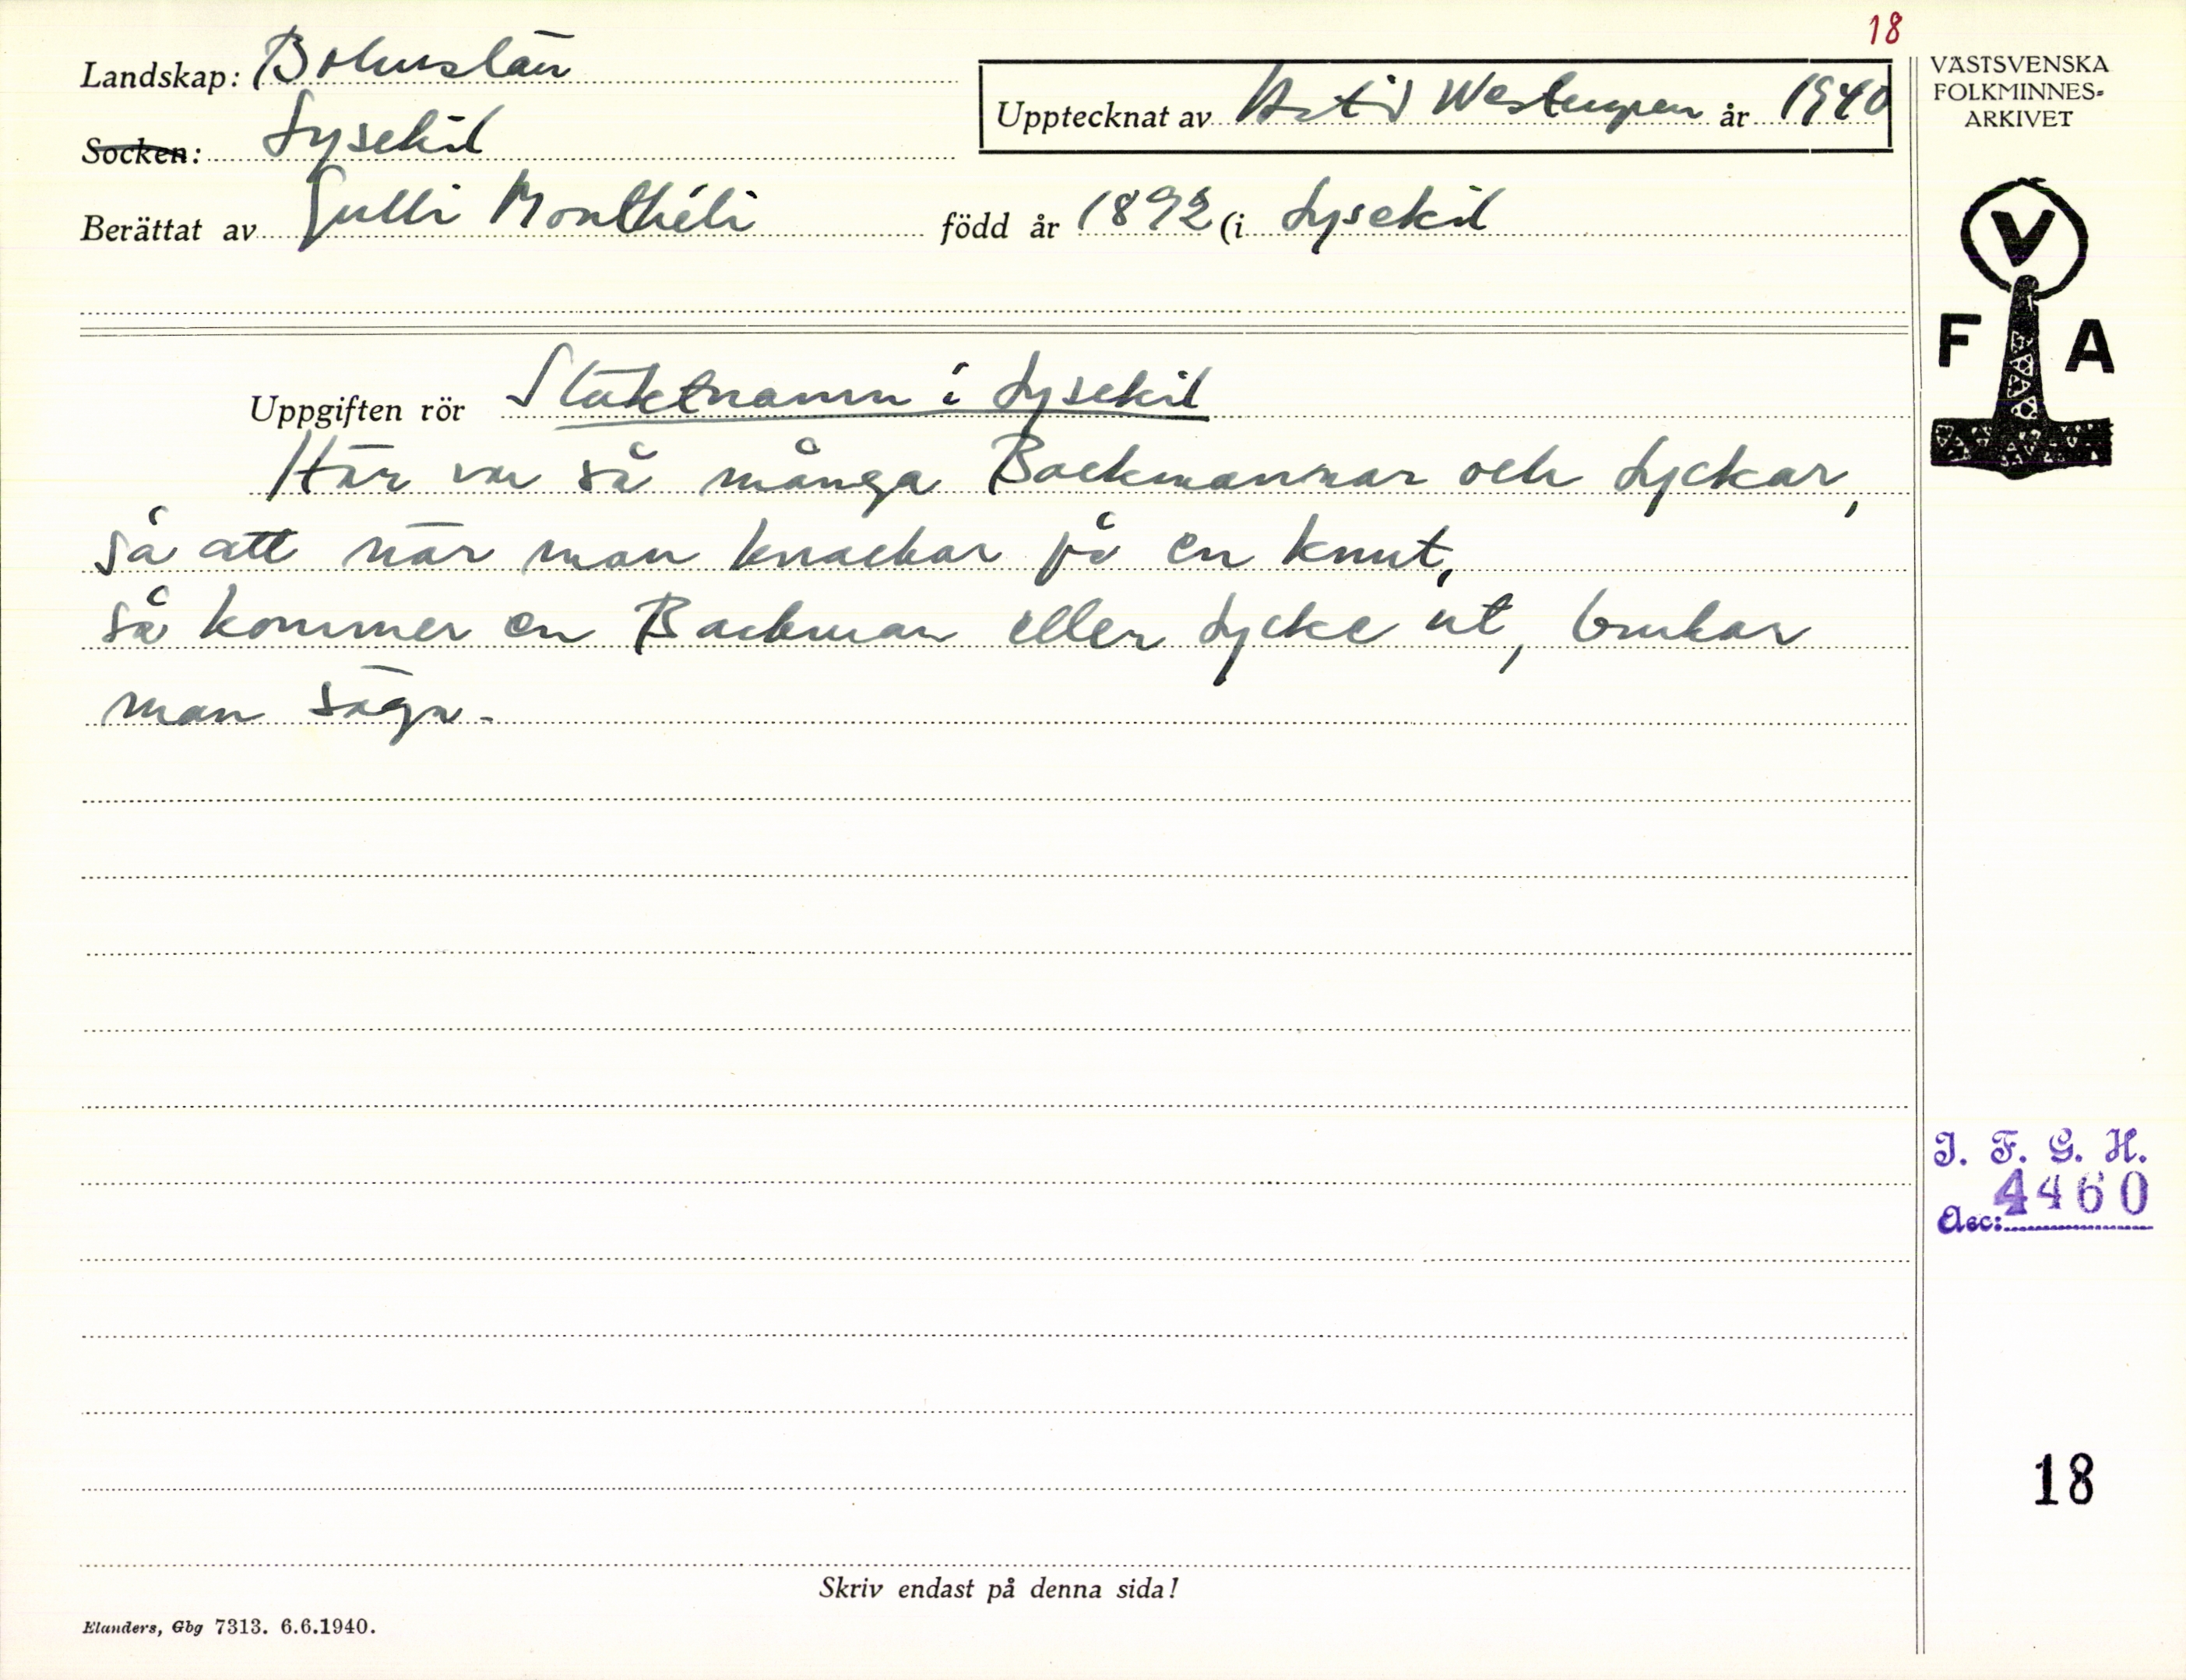 18
Landskap: Bohuslän
Upptecknat av Astrid Westergren år 1940
Socken: Lysekil
Berättat av Gulli Monthéli född år 1892 (i Lysekil
Uppgiften rör Släktnamn i Lysekil
Här var så många Backmannar och Lyckar,
så att när man knackar på en knut,
så kommer en Backman eller Lycke ut, brukar
man säga.
Skriv endast på denna sida!
Elanders, Gbg 7313. 6.6.1940.
VÄSTSVENSKA
FOLKMINNES-
ARKIVET
V
F A
I. F. G. H.
Acc: 4460
18